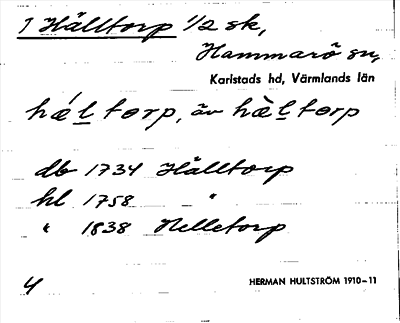 1 Hälltorp 1/2 sk,
Hammarö sn,
Karlstads hd, Värmlands län
hǽl̲ tɵrp, äv hæ̀l̲ tɵrp
db 1734 Hälltorp
hl 1758 "
" 1838 Helletorp
4 HERMAN HULTSTRÖM 1910-11